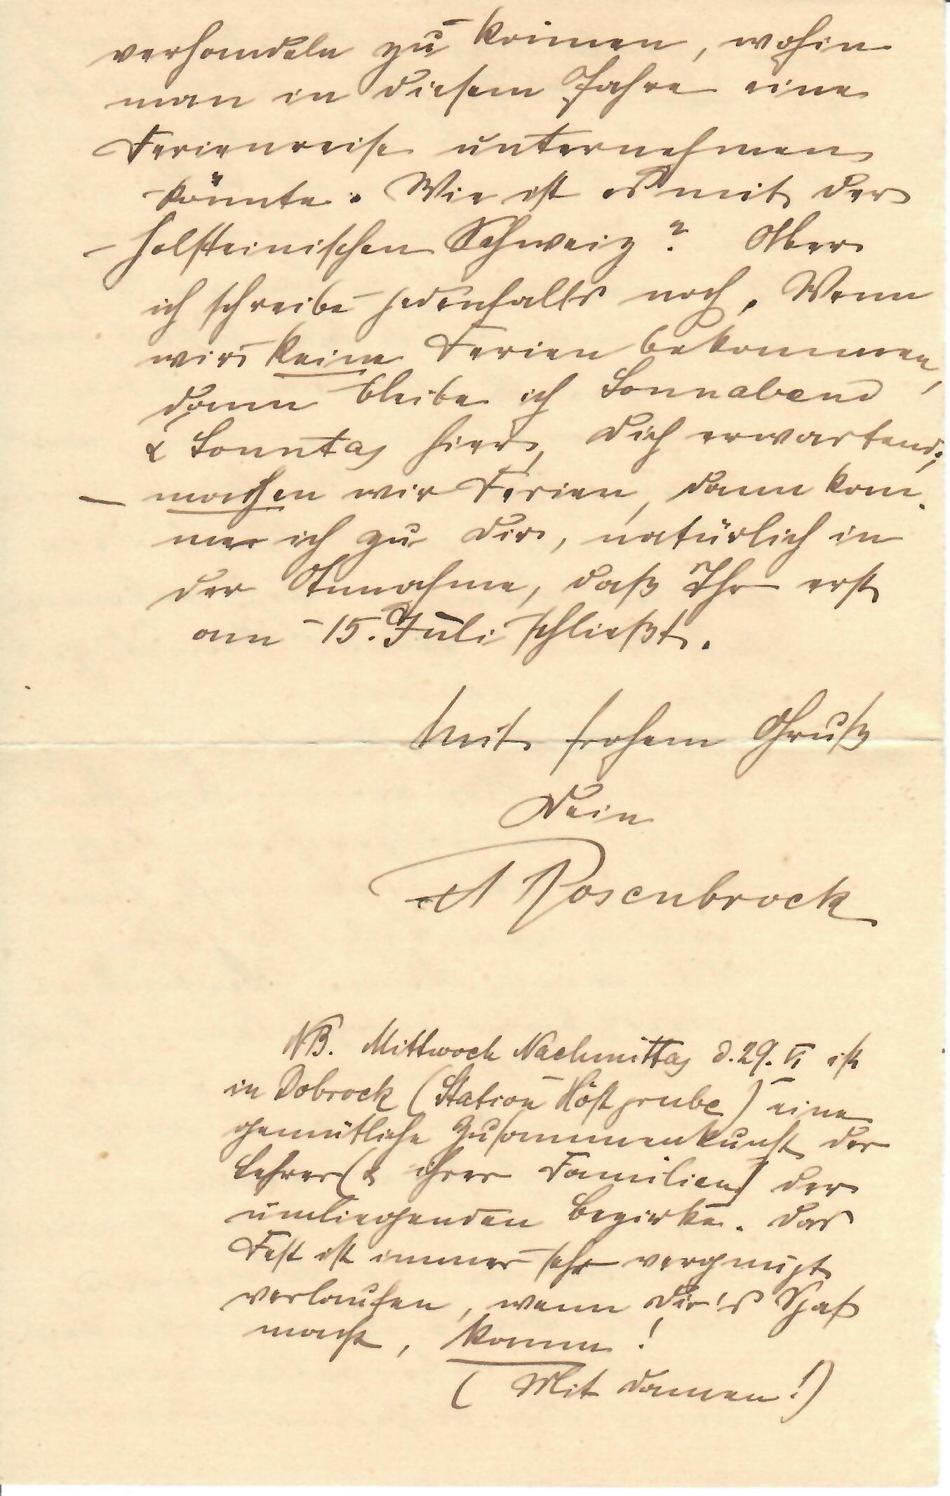 verhandeln zu können, wohin
man in diesem Jahre eine
Ferienreise unternehmen
könnte. Wie ist es mit der
holsteinischen Schweiz? Aber
ich schreibe jedenfalls noch. Wenn
wir keine Ferien bekommen,
dann bleibe ich Sonnabend
& Sonntag hier, Dich erwartend;
machen wir Ferien, dann kom-
me ich zu Dir, natürlich in
der Annahme, daß Ihr erst
am 15. Juli schließt.
Mit frohem Gruß
Dein
A Rosenbrock
NB. Mittwoch Nachmittag d. 29. VI ist
in Dobrock (Station Höftgrube) eine
gemütliche Zusammenkunft der
Lehrer (& ihrer Familien) der
umliegenden Bezirke. Das
Fest ist immer sehr vergnügt
verlaufen, wenn Dir's Spaß
macht, komm!
(Mit Damen!)